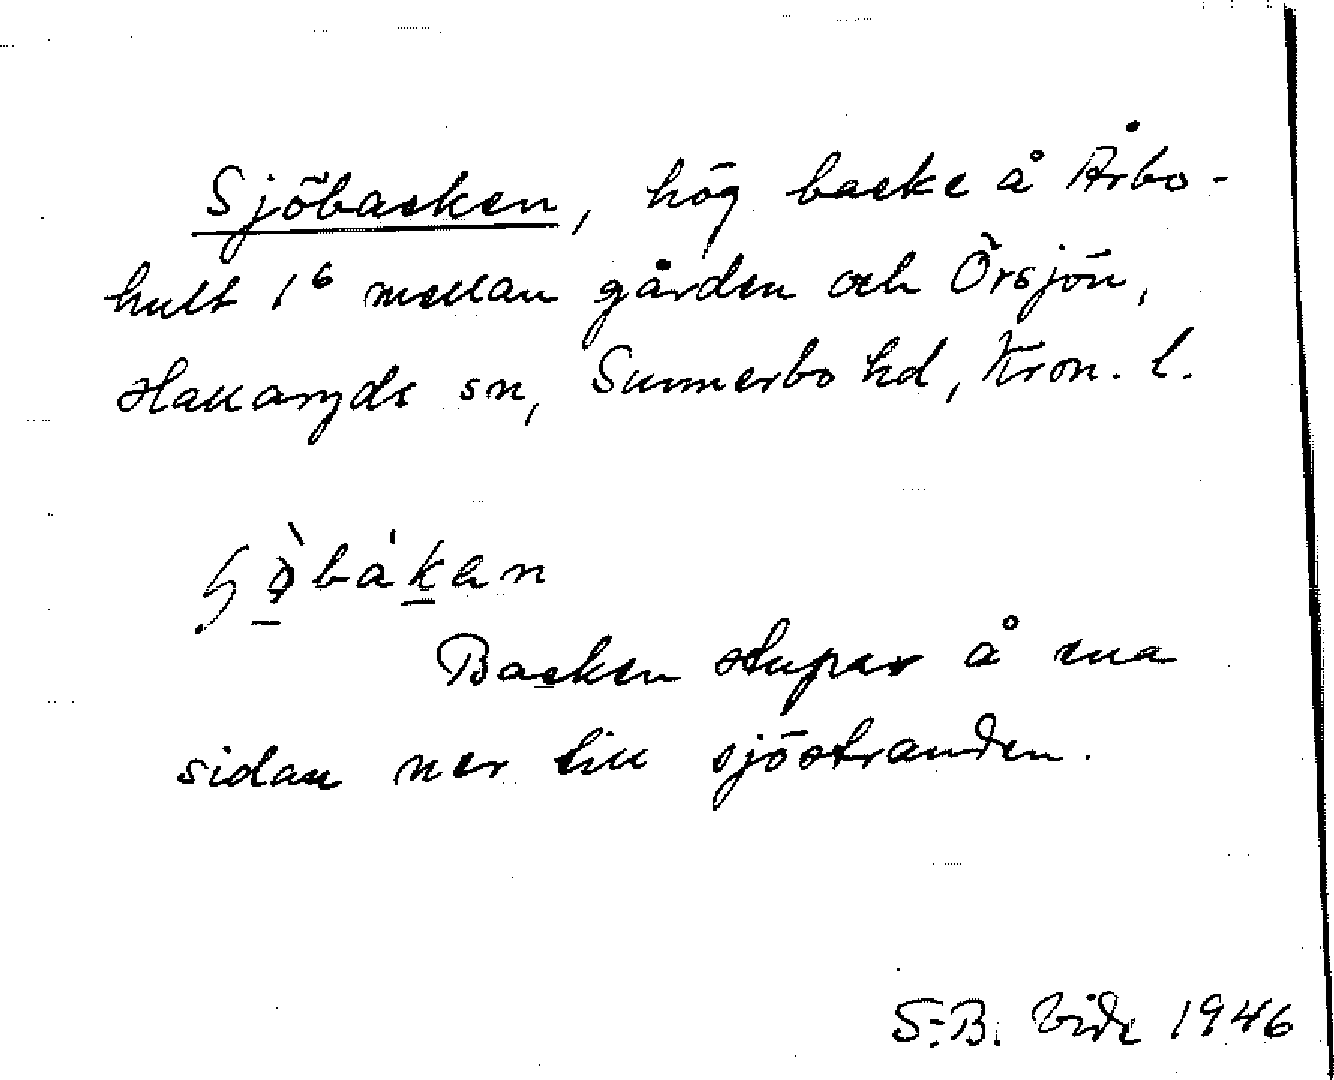 Sjöbacken, hög backe å Årbo-
hult 1⁶ mellan gården och Örsjön,
Hallaryds sn, Sunnerbo hd, Kron. l.
bákan
Backen stupar å ena
sidan ner till sjöstranden.
S.-B. Vide 1946